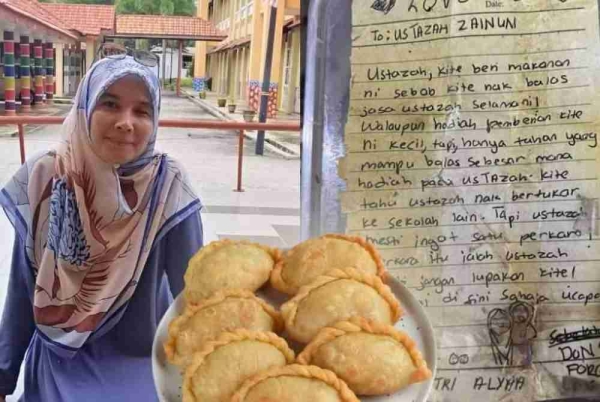 LOVE
Date:
To: USTAZAH ZAINUN
Ustazah, kite beri makanan
ni sebab kite nak balas
jasa ustazah selamani,
Walaupun hadiah pemberian kite
ni kecil, tapi, hanya tuhan yang
mampu balas sebesar mana
hadiah pada usTAZAH. kite
tahu ustazah nak bertukar
ke sekolah lain. Tapi ustazah
mesti ingat satu perkara!
itu ialah ustazah
jangan lupakan kite!
di sini sahaja
DON'
TRI ALYAA